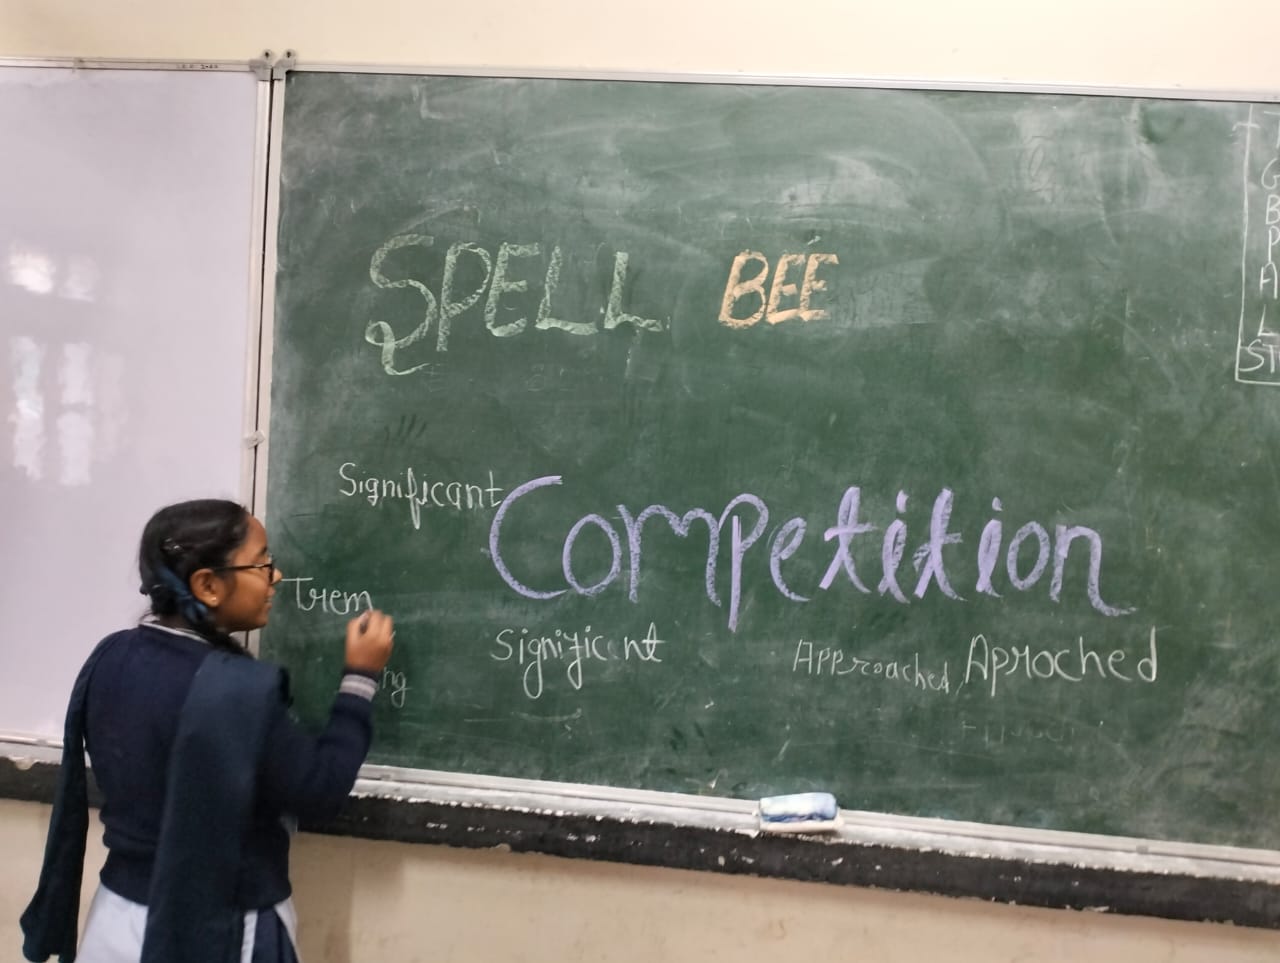 SPELL BEE
Significant
Competition
Trem
Significant
Approached, Aproched
ng
T
G
B
P
A
L
ST